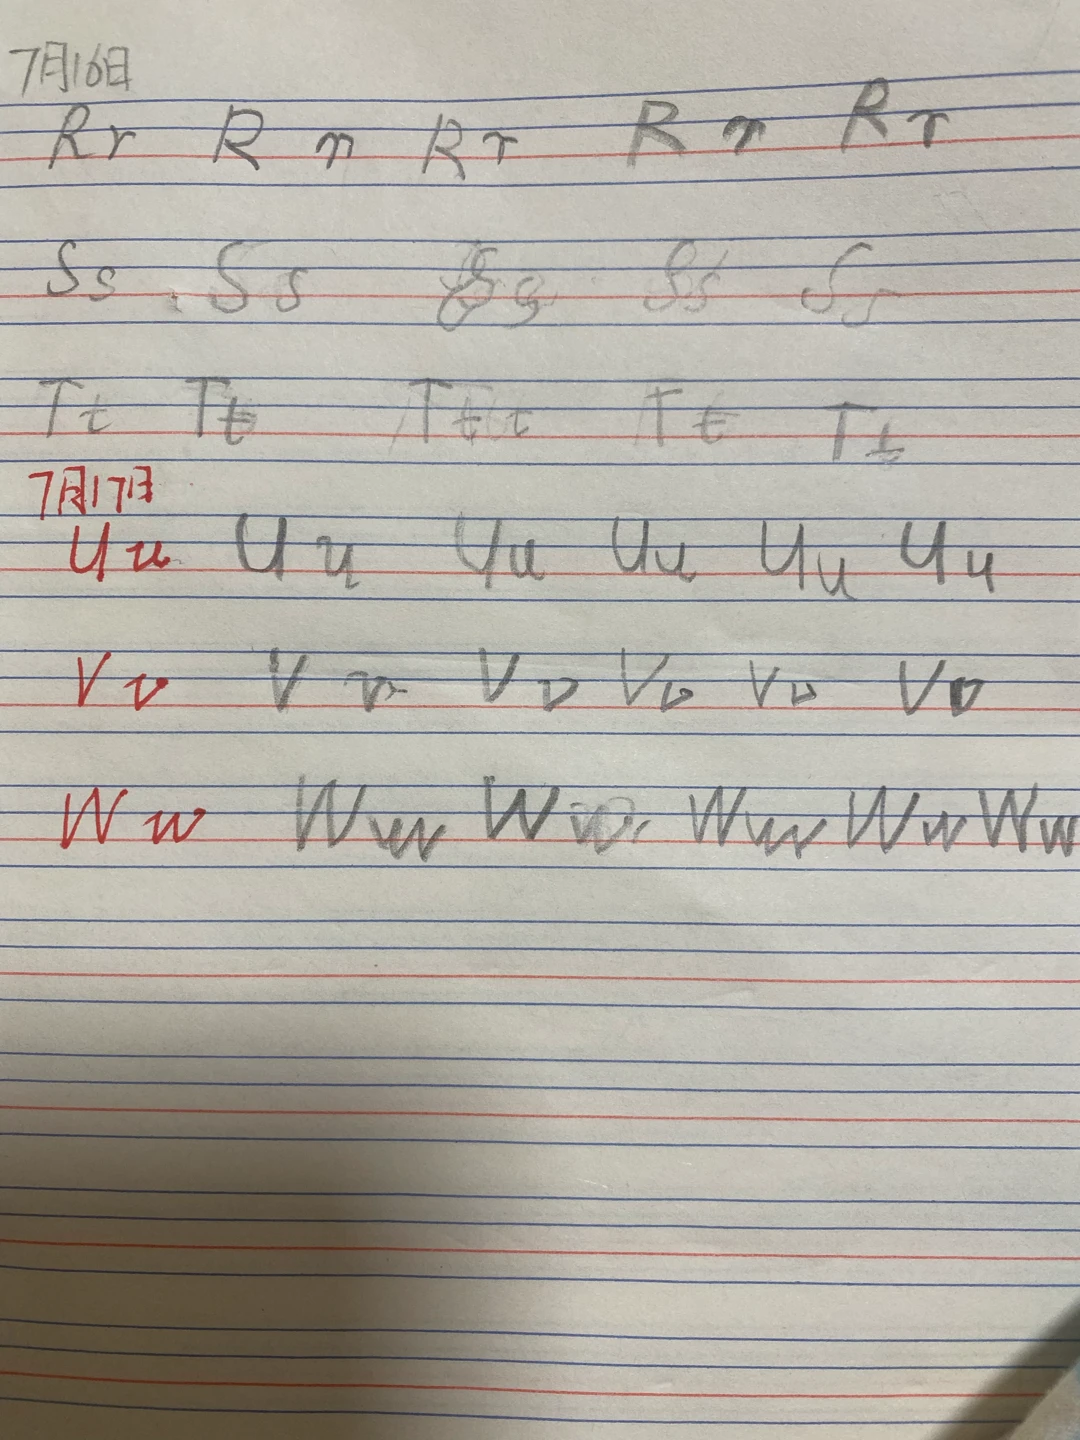 7月16日
Rr R r Rr R r Rr
Ss Ss Ss Ss Ss
Tt Tt Ttt Tt Tt
7月17日
Uu Uu Uu Uu Uu Uu
Vv Vv Vv Vv Vv Vv
Ww Ww Ww Ww Ww Ww